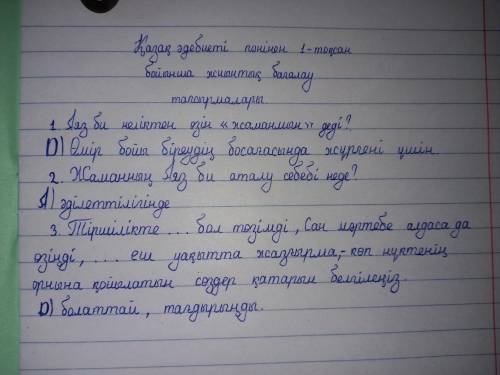 Қазақ әдебиеті пәнінен 1-тоқсан
бойынша жиынтық бағалау
тапсырмалары.
1. Аяз би неліктен өзін «жаманмын» деді?
D) Өмір бойы біреудің босағасында жүргені үшін.
2. Жаманның Аяз би аталу себебі неде?
А) әділеттілігінде
3. Тіршілікте ... бол төзімді, Сан мәртебе алдаса да
өзіңді, ... еш уақытта жазғырма,- көп нүктенің
орнына қойылатын сөздер қатарын белгілеңіз.
D) болаттай, тағдырыңды.